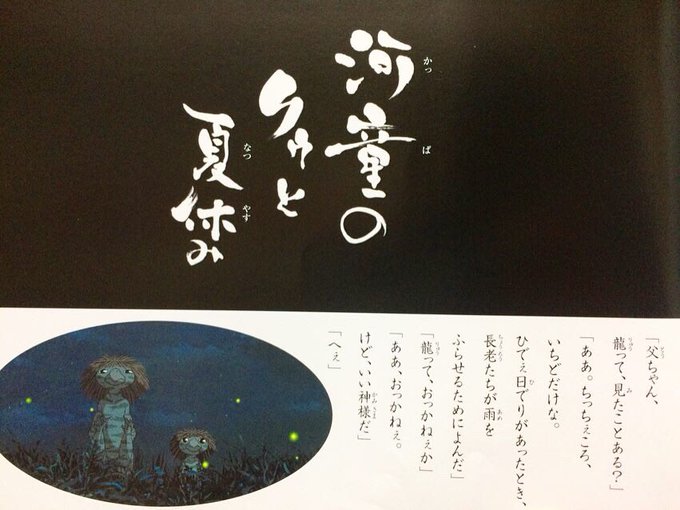 河童の
クゥと
夏休み
「父ちゃん、
龍って、見たことある?」
「ああ。ちっちぇころ、
いちどだけな。
ひでぇ日でりがあったとき、
長老たちが雨を
ふらせるためによんだ」
「龍って、おっかねぇか」
「ああ、おっかねぇ。
けど、いい神様だ」
「へぇ」